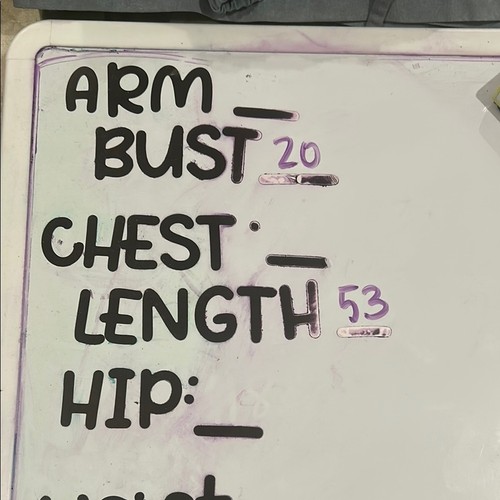 ARM __
BUST 20
CHEST: __
LENGTH 53
HIP: __